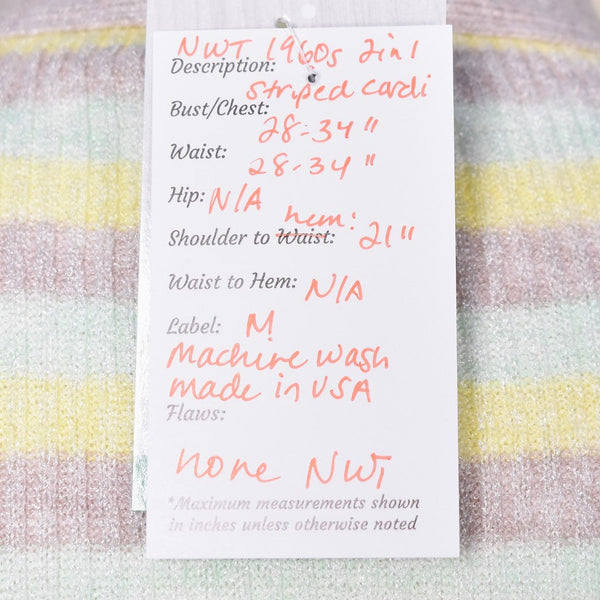 NWT 1960s 2in1
Description:
striped cardi
Bust/Chest:
28-34"
Waist:
28-34"
Hip: N/A
hem:
Shoulder to Waist: 21"
Waist to Hem: N/A
Label: M
machine wash
made in USA
Flaws:
none NWT
*Maximum measurements shown
in inches unless otherwise noted